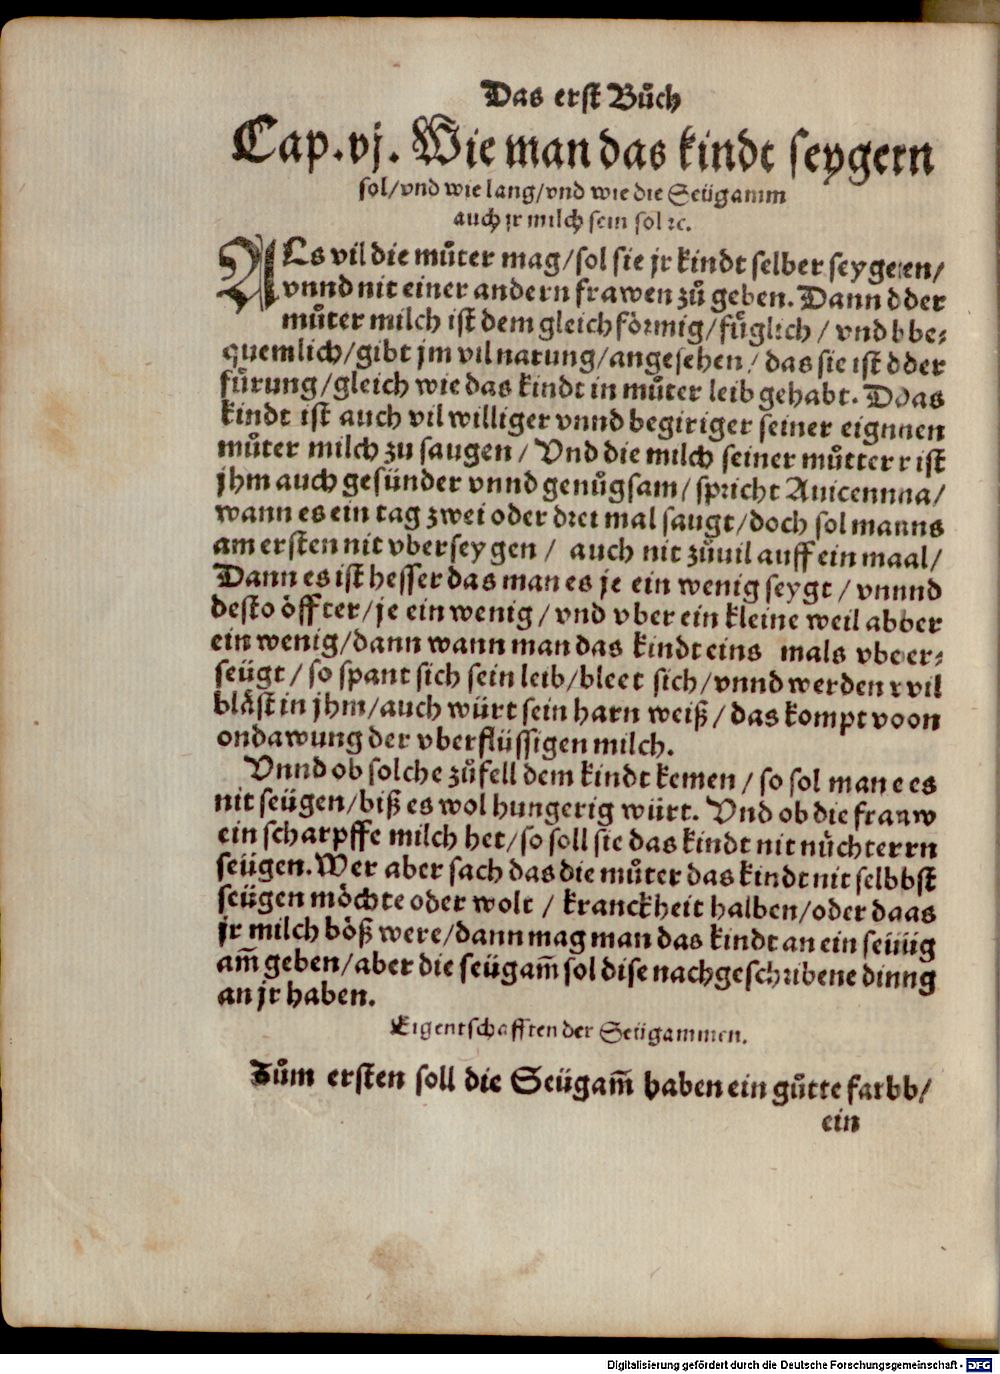 Das erſt Bůch
Cap.vj. Wie man das kindt ſeygern
ſol/vnd wie lang/vnd wie die Seügamm
auch jr milch ſein ſol ꝛc.
ALs vil die můter mag/ſol ſie jr kindt ſelber ſeygeen/
vnnd nit einer andern frawen zů geben. Dann dder
můter milch iſt dem gleich förmig/fůglich / vnd bbe⸗
quemlich/gibt jm vil narung/angeſehen / das ſie iſt dder
fůrung/gleich wie das kindt in můter leib gehabt. DDas
kindt iſt auch vil williger vnnd begiriger ſeiner eignnen
můter milch zu ſaugen / Vnd die milch ſeiner můtter r iſt
jhm auch geſünder vnnd genůgſam/ ſpricht Auicennna/
wann es ein tag zwei oder drei mal ſaugt/doch ſol manns
am erſten nit vberſeygen / auch nit zůuil auff ein maal/
Dann es iſt beſſer das man es je ein wenig ſeygt / vnnnd
deſto öffter/je ein wenig / vnd vber ein kleine weil abber
ein wenig/dann wann man das kindt eins mals vbeer⸗
ſeügt / ſo ſpant ſich ſein leib/bleet ſich/vnnd werden vvil
bläſt in jhm/auch würt ſein harn weiß / das kompt voon
ondawung der vberflüſſigen milch.
Vnnd ob ſolche zůfell dem kindt kemen / ſo ſol man e es
nit ſeügen/biß es wol hungerig würt. Vnd ob die frauw
ein ſcharpffe milch het/ſo ſoll ſie das kindt nit nüchterrn
ſeügen. Wer aber ſach das die můter das kindt nit ſelbbſt
ſeügen möchte oder wolt / kranckheit halben/oder daas
jr milch böß were/dann mag man das kindt an ein ſeüüg
am̃ geben/aber die ſeügam̃ ſol diſe nachgeſchribene dinng
an jr haben.
Eigentſchafften der Seügammen.
Zům erſten ſoll die Seügam̃ haben ein gůtte farbb/
ein
Digitalisierung gefördert durch die Deutsche Forschungsgemeinschaft - DFG